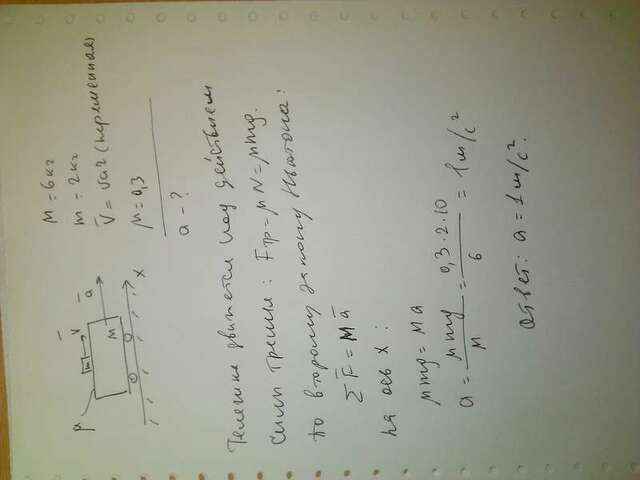 M = 6кг
m = 2кг
V̅ = var (переменная)
μ = 0,3
a - ?
μ
m
V̅
a̅
M
X
Тележка движется под действием
силы трения: Fтр = μN = μmg.
по второму закону Ньютона:
ΣF̅ = Ma̅
на ось X:
μmg = Ma
a = μmg/M = 0,3·2·10/6 = 1 м/с²
Ответ: a = 1 м/с².